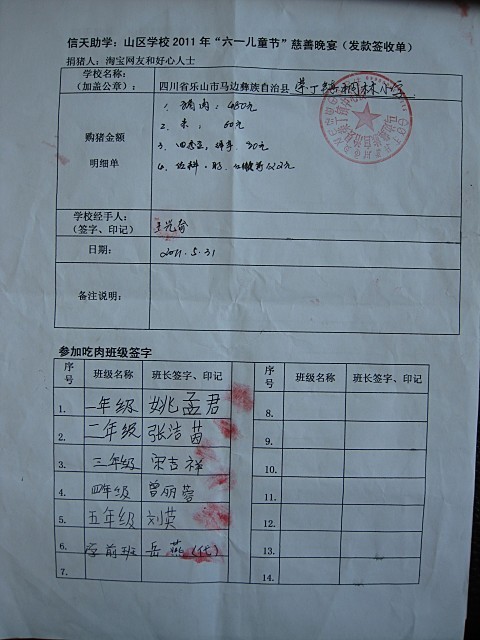 信天助学：山区学校2011年“六一儿童节”慈善晚宴（发款签收单）
捐猪人：淘宝网友和好心人士
学校名称：
（加盖公章）：
四川省乐山市马边彝族自治县 荣丁镇 林小学
购猪金额
明细单
1. 猪肉：480元
2. 米： 60元
3. 30元
4. 佐料
学校经手人：
（签字、印记）
日期：
2011.5.31
备注说明：
参加吃肉班级签字
序号 班级名称 班长签字、印记 序号 班级名称 班长签字、印记
1. 一年级 姚孟君 8.
2. 二年级 张洁茵 9.
3. 三年级 宋吉祥 10.
4. 四年级 曾丽蓉 11.
5. 五年级 刘英 12.
6. 学前班 岳燕（代） 13.
7. 14.